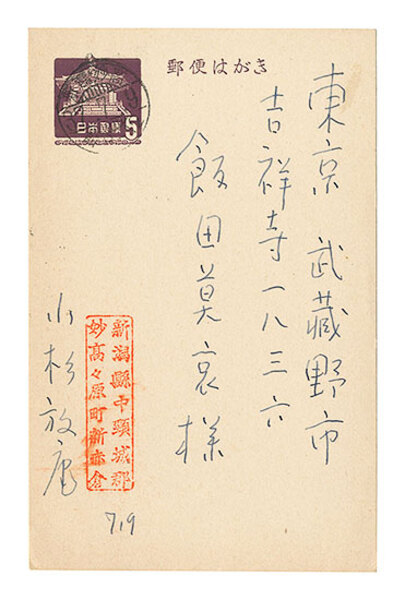 郵便はがき
日本郵便
5
東京 武蔵野市
吉祥寺一八三六
飯田莫哀様
新潟縣中頸城郡
妙高々原町新赤倉
小杉放庵
7.19